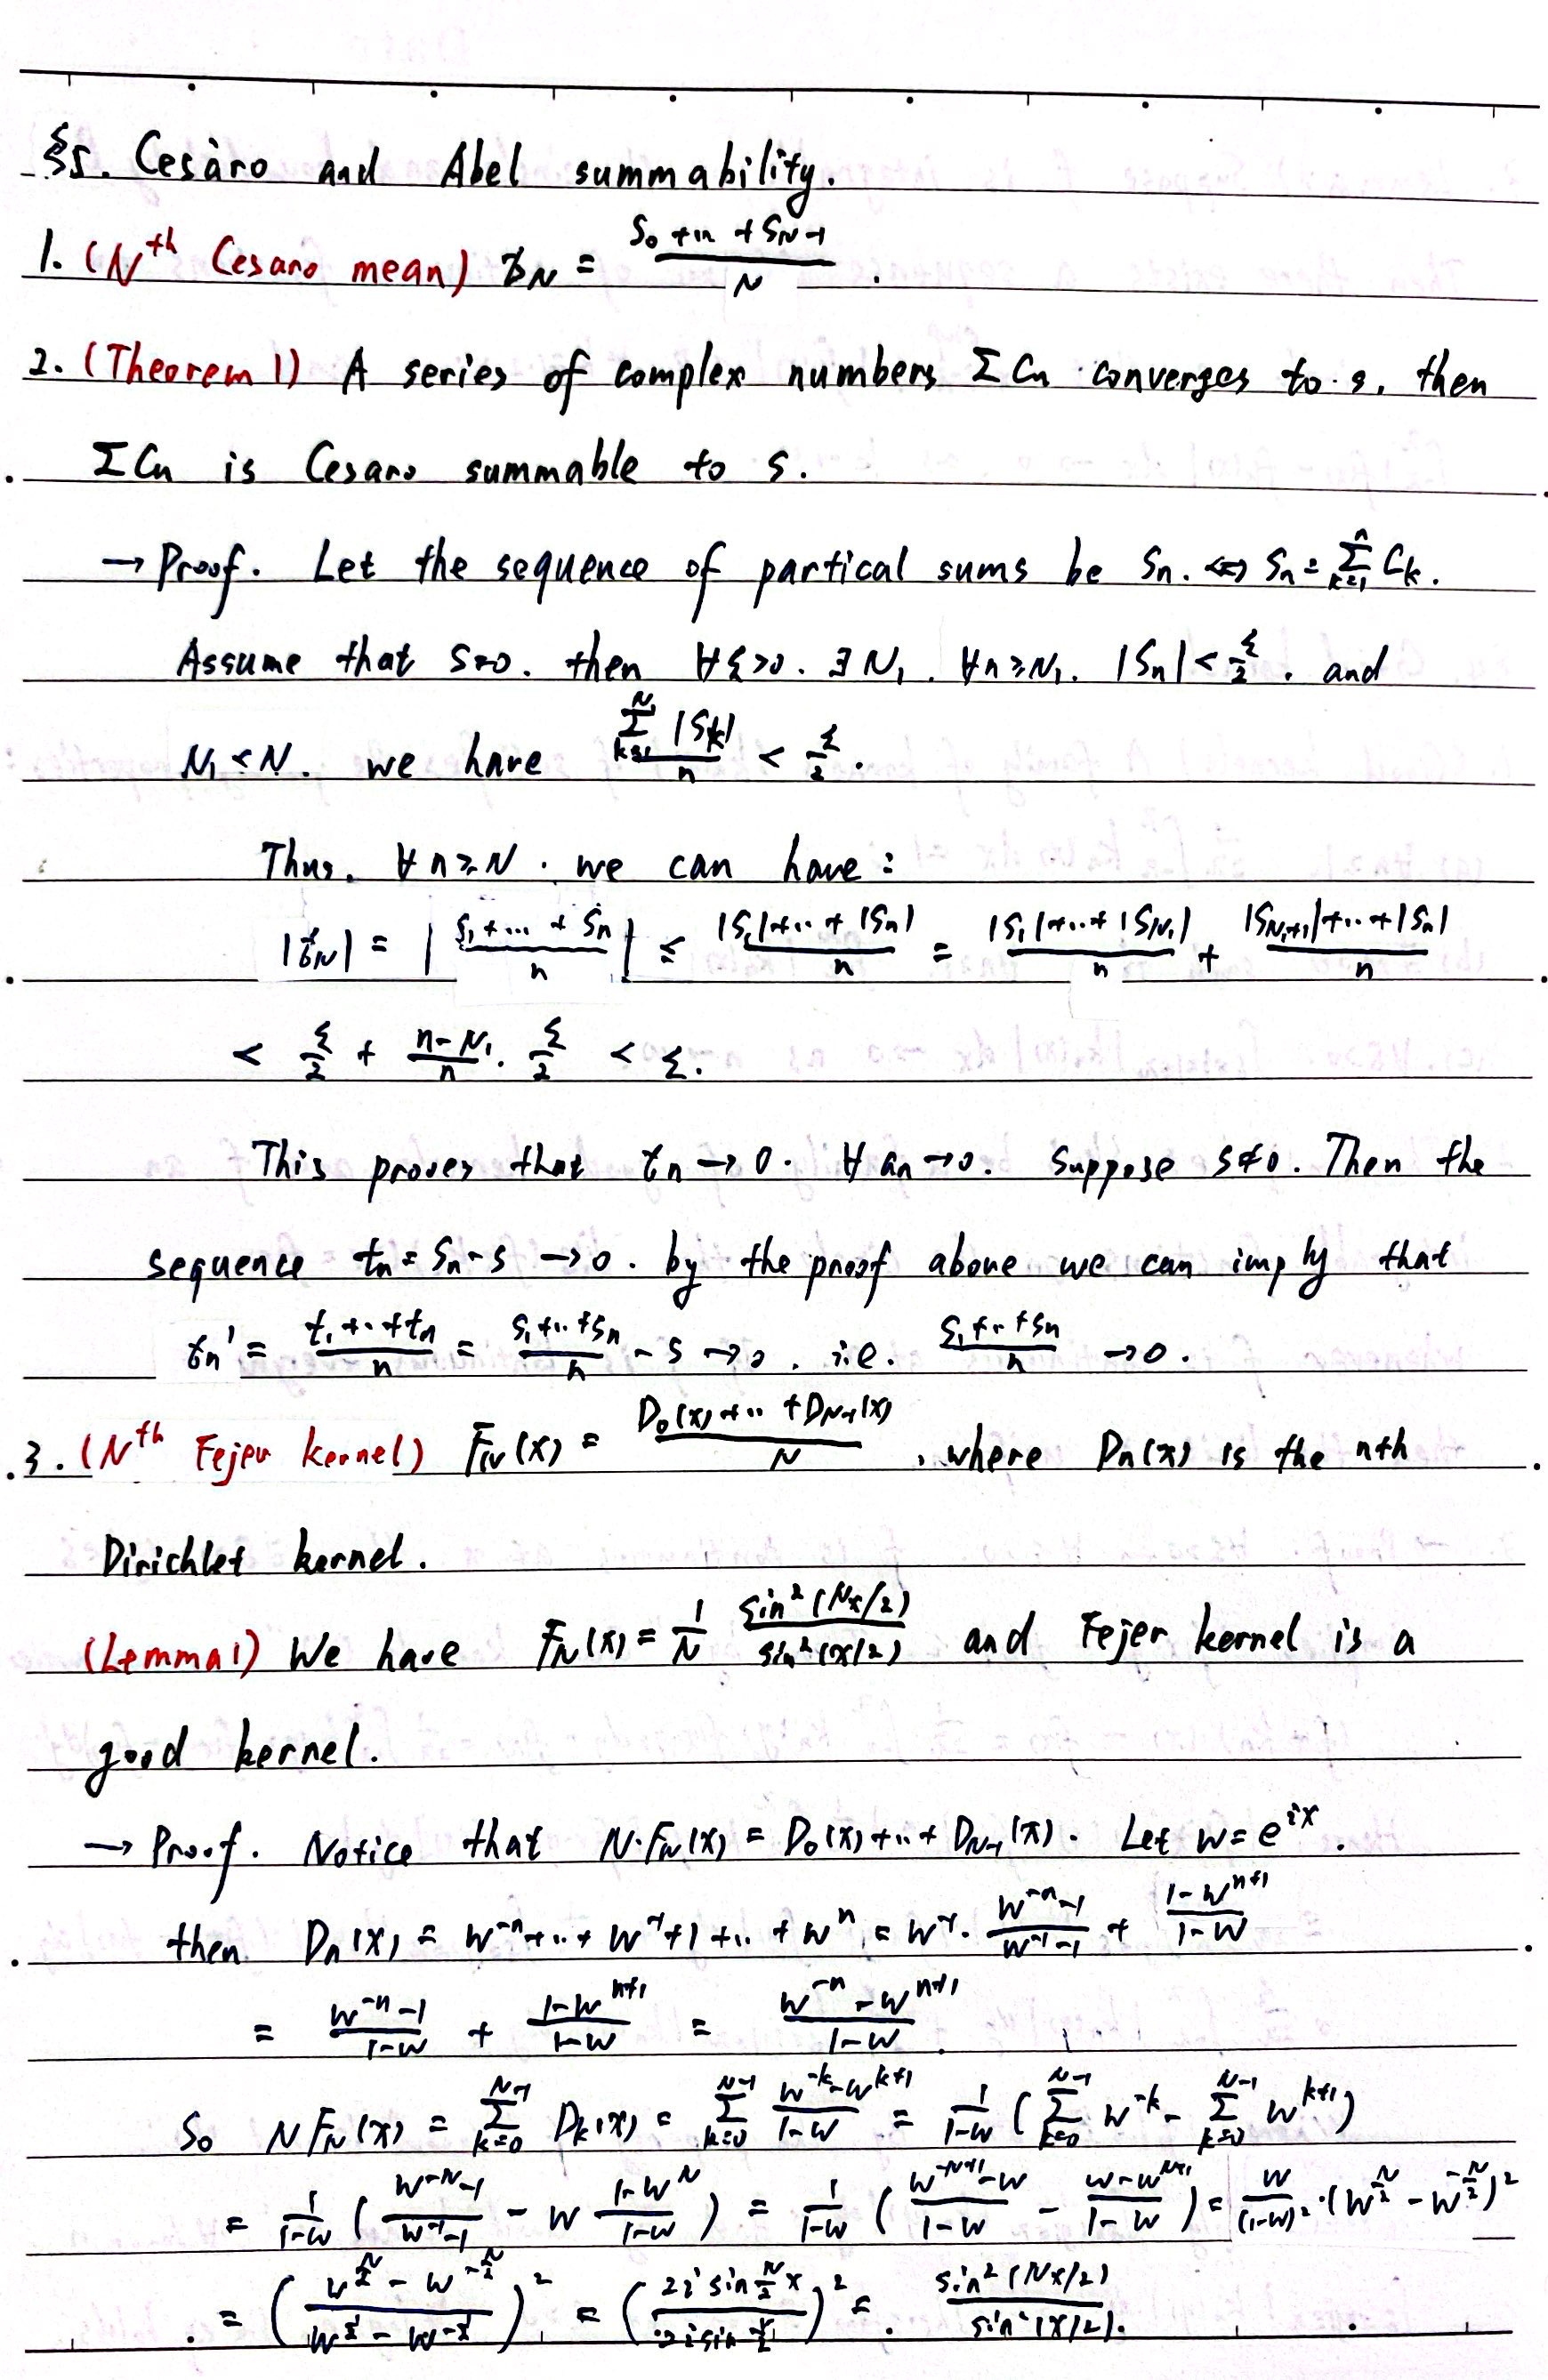 §5. Cesàro and Abel summability.
1. (Nth Cesaro mean) σN = (S0 + ... + SN-1)/N .
2. (Theorem 1) A series of complex numbers ΣCn converges to s, then
ΣCn is Cesaro summable to s.
→ Proof. Let the sequence of partical sums be Sn. ⇔ Sn = Σ_{k=1}^{n} Ck.
Assume that S=0. then ∀ε>0. ∃N1. ∀n≥N1. |Sn| < ε/2 . and
N1 < N. we have (Σ_{k=1}^{N1} |Sk|)/n < ε/2 .
Thus, ∀n≥N. we can have:
|σN| = |(S1 + ... + Sn)/n| ≤ (|S1| + ... + |Sn|)/n = (|S1| + ... + |SN1|)/n + (|SN1+1| + ... + |Sn|)/n
< ε/2 + (n-N1)/n · ε/2 < ε.
This proves that σn → 0. ∀ an → 0. Suppose S≠0. Then the
sequence tn = Sn - s → 0. by the proof above we can imply that
σn' = (t1 + ... + tn)/n = (S1 + ... + Sn)/n - s → 0 , i.e. (S1 + ... + Sn)/n → 0.
3. (Nth Fejer kernel) FN(x) = (D0(x) + ... + DN-1(x))/N , where Dn(x) is the nth
Dirichlet kernel.
(Lemma1) We have FN(x) = 1/N sin²(Nx/2)/sin²(x/2) and Fejer kernel is a
good kernel.
→ Proof. Notice that N·FN(x) = D0(x) + ... + DN-1(x). Let w = e^{ix}.
then Dn(x) = w^{-n} + ... + w^{-1} + 1 + ... + w^n = w^{-1} · (w^{-n} - 1)/(w^{-1} - 1) + (1 - w^{n+1})/(1 - w)
= (w^{-n} - 1)/(1 - w) + (1 - w^{n+1})/(1 - w) = (w^{-n} - w^{n+1})/(1 - w) .
So NFN(x) = Σ_{k=0}^{N-1} Dk(x) = Σ_{k=0}^{N-1} (w^{-k} - w^{k+1})/(1 - w) = 1/(1 - w) (Σ_{k=0}^{N-1} w^{-k} - Σ_{k=0}^{N-1} w^{k+1})
= 1/(1 - w) ((w^{-N} - 1)/(w^{-1} - 1) - w (1 - w^N)/(1 - w)) = 1/(1 - w) ((w^{-N+1} - w)/(1 - w) - (w - w^{N+1})/(1 - w)) = w/(1 - w)² · (w^{N/2} - w^{-N/2})²
= ((w^{N/2} - w^{-N/2})/(w^{1/2} - w^{-1/2}))² = ((2i sin N/2 x)/(2i sin x/2))² = sin²(Nx/2)/sin²(x/2).